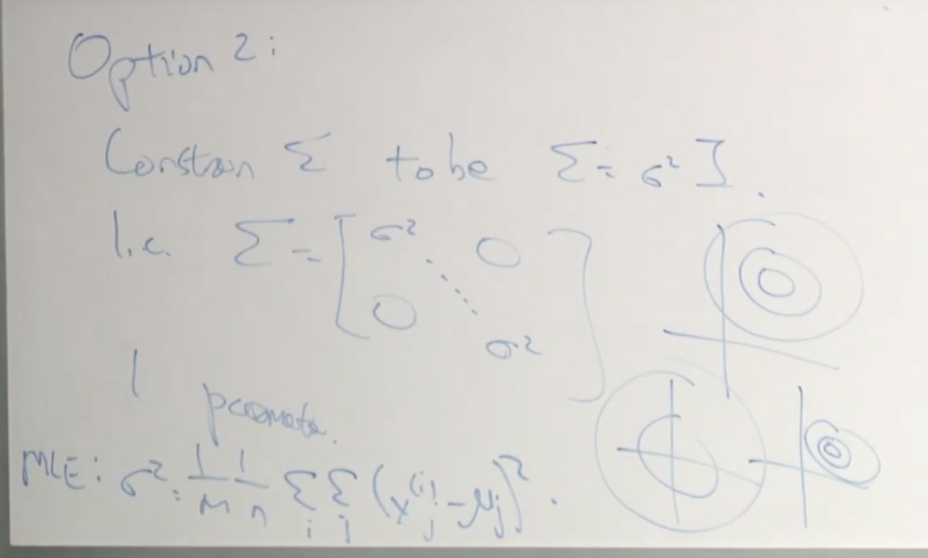 Option 2:
Constrain Σ to be Σ = σ² I.
I.e. Σ = [ σ² ⋱ 0 0 σ² ]
1 parameter.
MLE: σ² = 1/m 1/n Σ_i Σ_j (x_j^(i) - μ_j)².